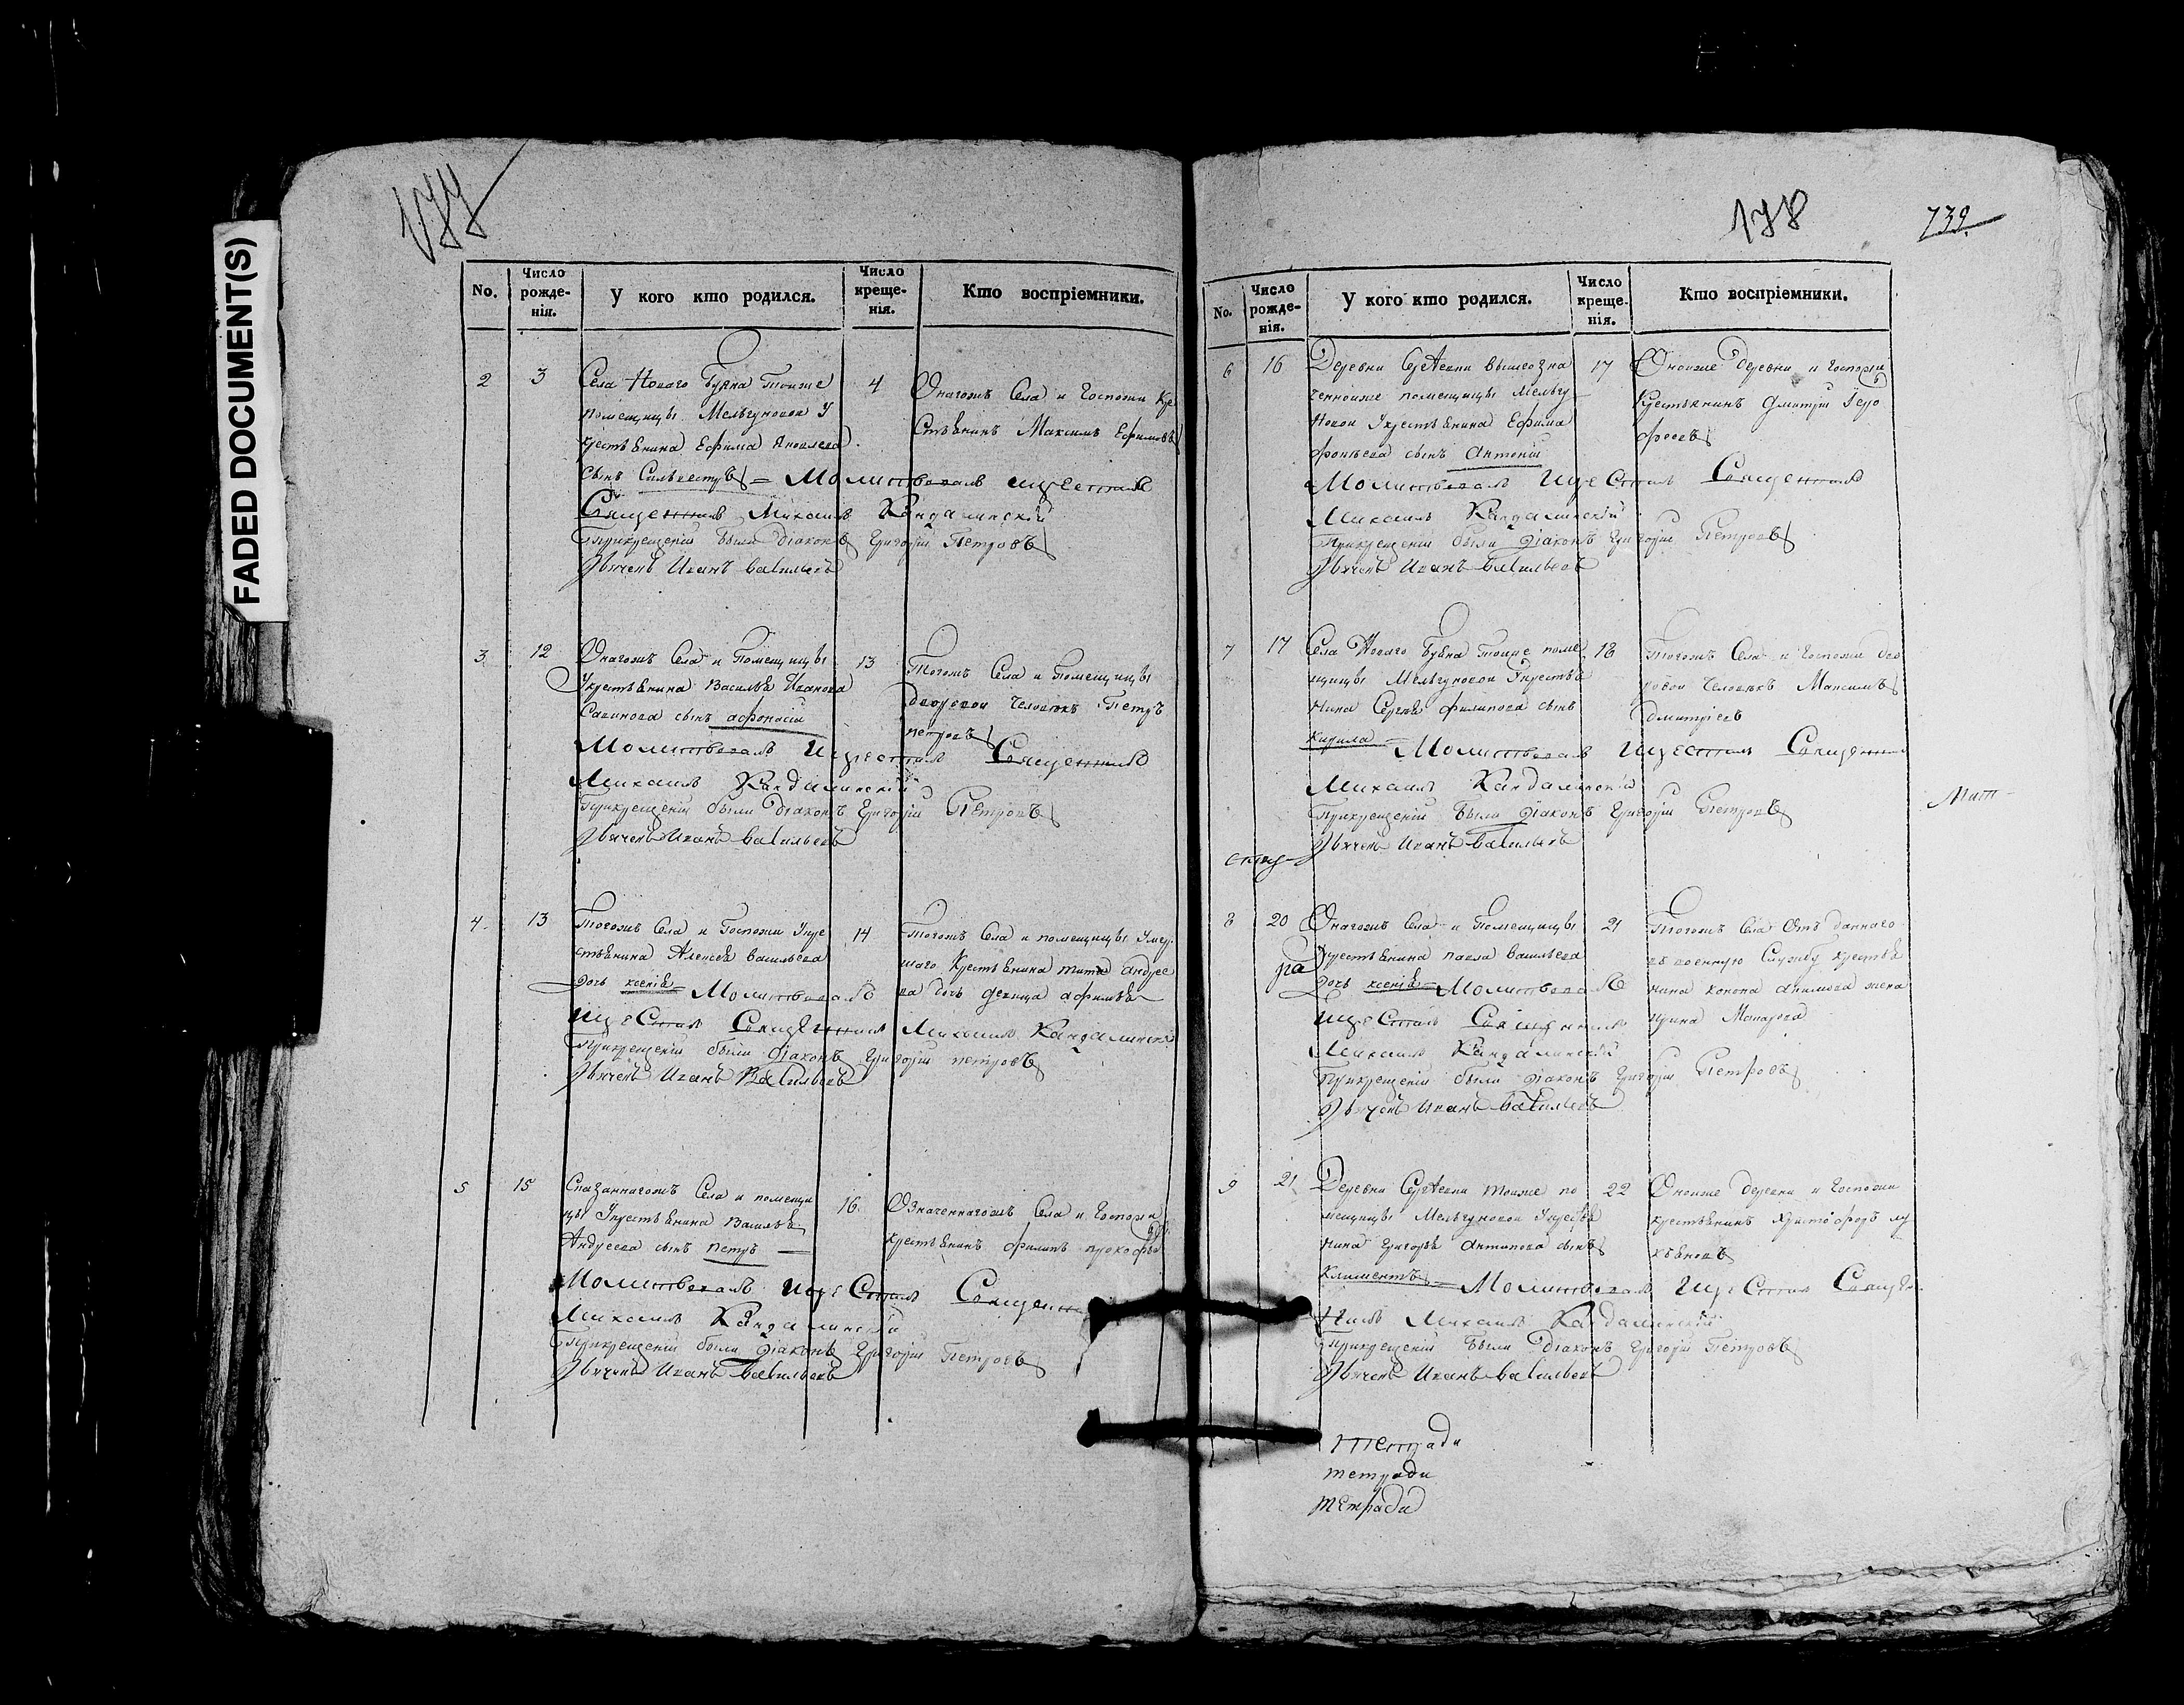 FADED DOCUMENT(S)
177
No.
Число рожде-нія.
У кого кто родился.
Число креще-нія.
Кто воспріемники.
2
3
Села Новаго Буяна тоиже
помещицы Мельгуновой у
крестьянина Ефима Яковлева
сынъ Сильвестръ = Молитвовалъ икрестилъ
Священникъ Михаилъ Кандалинскій
Прикрещеніи были Діаконъ Григорій Петровъ
Дьячекъ Иванъ Васильевъ
4
Онагожъ Села и Госпожи Кре
стьянинъ Максимъ Ефимовъ
3
12
Онагожъ Села и Помещицы
Укрестьянина Василья Иванова
Савинова сынъ афонасій
Молитвовалъ Икрестилъ Священникъ
Михаилъ Кандалинскій
Прикрещеніи были Діаконъ Григорій Петровъ
Дьячекъ Иванъ Васильевъ
13
Тогожъ Села и Помещицы
дворовои человекъ Петръ
петровъ
4
13
Тогожъ Села и Госпожи Укре
стьянина Алексея васильева
дочь ксенія = Молитвовалъ
икрестилъ Священникъ Михаилъ Кандалинскій
Прикрещеніи были Діаконъ Григорій петровъ
Дьячекъ Иванъ Васильевъ
14
Тогожъ Села и помещицы Умер
шаго Крестьянина тита андрее
ва дочь девица афимья
5
15
Сказаннагожъ Села и помещи
цы Укрестьянина Василья
Андреева сынъ петръ —
Молитвовалъ икрестилъ Священ
Михаилъ Кандалинскій
Прикрещеніи были Діаконъ Григорій Петровъ
Дьячекъ Иванъ Васильевъ
16
Означеннагожъ Села и Госпожи
крестьянинъ филипъ прокофье
178
739
No.
Число рожде-нія.
У кого кто родился.
Число креще-нія.
Кто воспріемники.
6
16
Деревни Сергѣевки вышеозна
ченноиже помещицы Мельгу
новои Укрестьянина Ефима
сынъ Антоній
Молитвовалъ Икрестилъ Священникъ
Михаилъ Кандалинскій
Прикрещеніи были Діаконъ Григорій Петровъ
Дьячекъ Иванъ Васильевъ
17
Оноиже деревни и Госпожи
Крестьянинъ Дмитри
7
17
Села Новаго Буяна тоиже поме
щицы Мельгуновои Укрестья
нина Сергея филипова сынъ
Кирила = Молитвовалъ Икрестилъ Священникъ
Михаилъ Кандалинскій
Прикрещеніи были Діаконъ Григорій Петровъ
Дьячекъ Иванъ Васильевъ
18
Тогожъ Села и Госпожи дво
ровои человекъ Максимъ
дмитріевъ
8
20
Онагожъ Села и Помещицы
Укрестьянина павла васильева
дочь ксенія = Молитвовалъ
икрестилъ Священникъ
Михаилъ Кандалинскій
Прикрещеніи были Діаконъ Григорій Петровъ
Дьячекъ Иванъ Васильевъ
21
Тогожъ Села Отъ даннаго
въ военную Службу крестья
нина конона акимова жена
ирина Макарова
9
21
Деревни Сергѣевки тоиже по
мещицы Мельгуновои Укрестья
нина Григорья Антипова сынъ
Климентъ = Молитвовалъ Икрестилъ Священ
никъ Михаилъ Кандалинскій
Прикрещеніи были Діаконъ Григорій Петровъ
Дьячекъ Иванъ Васильевъ
22
Оноиже деревни и Госпожи
крестьянинъ христофоръ лу
кьяновъ
тетради
тетради
тетради